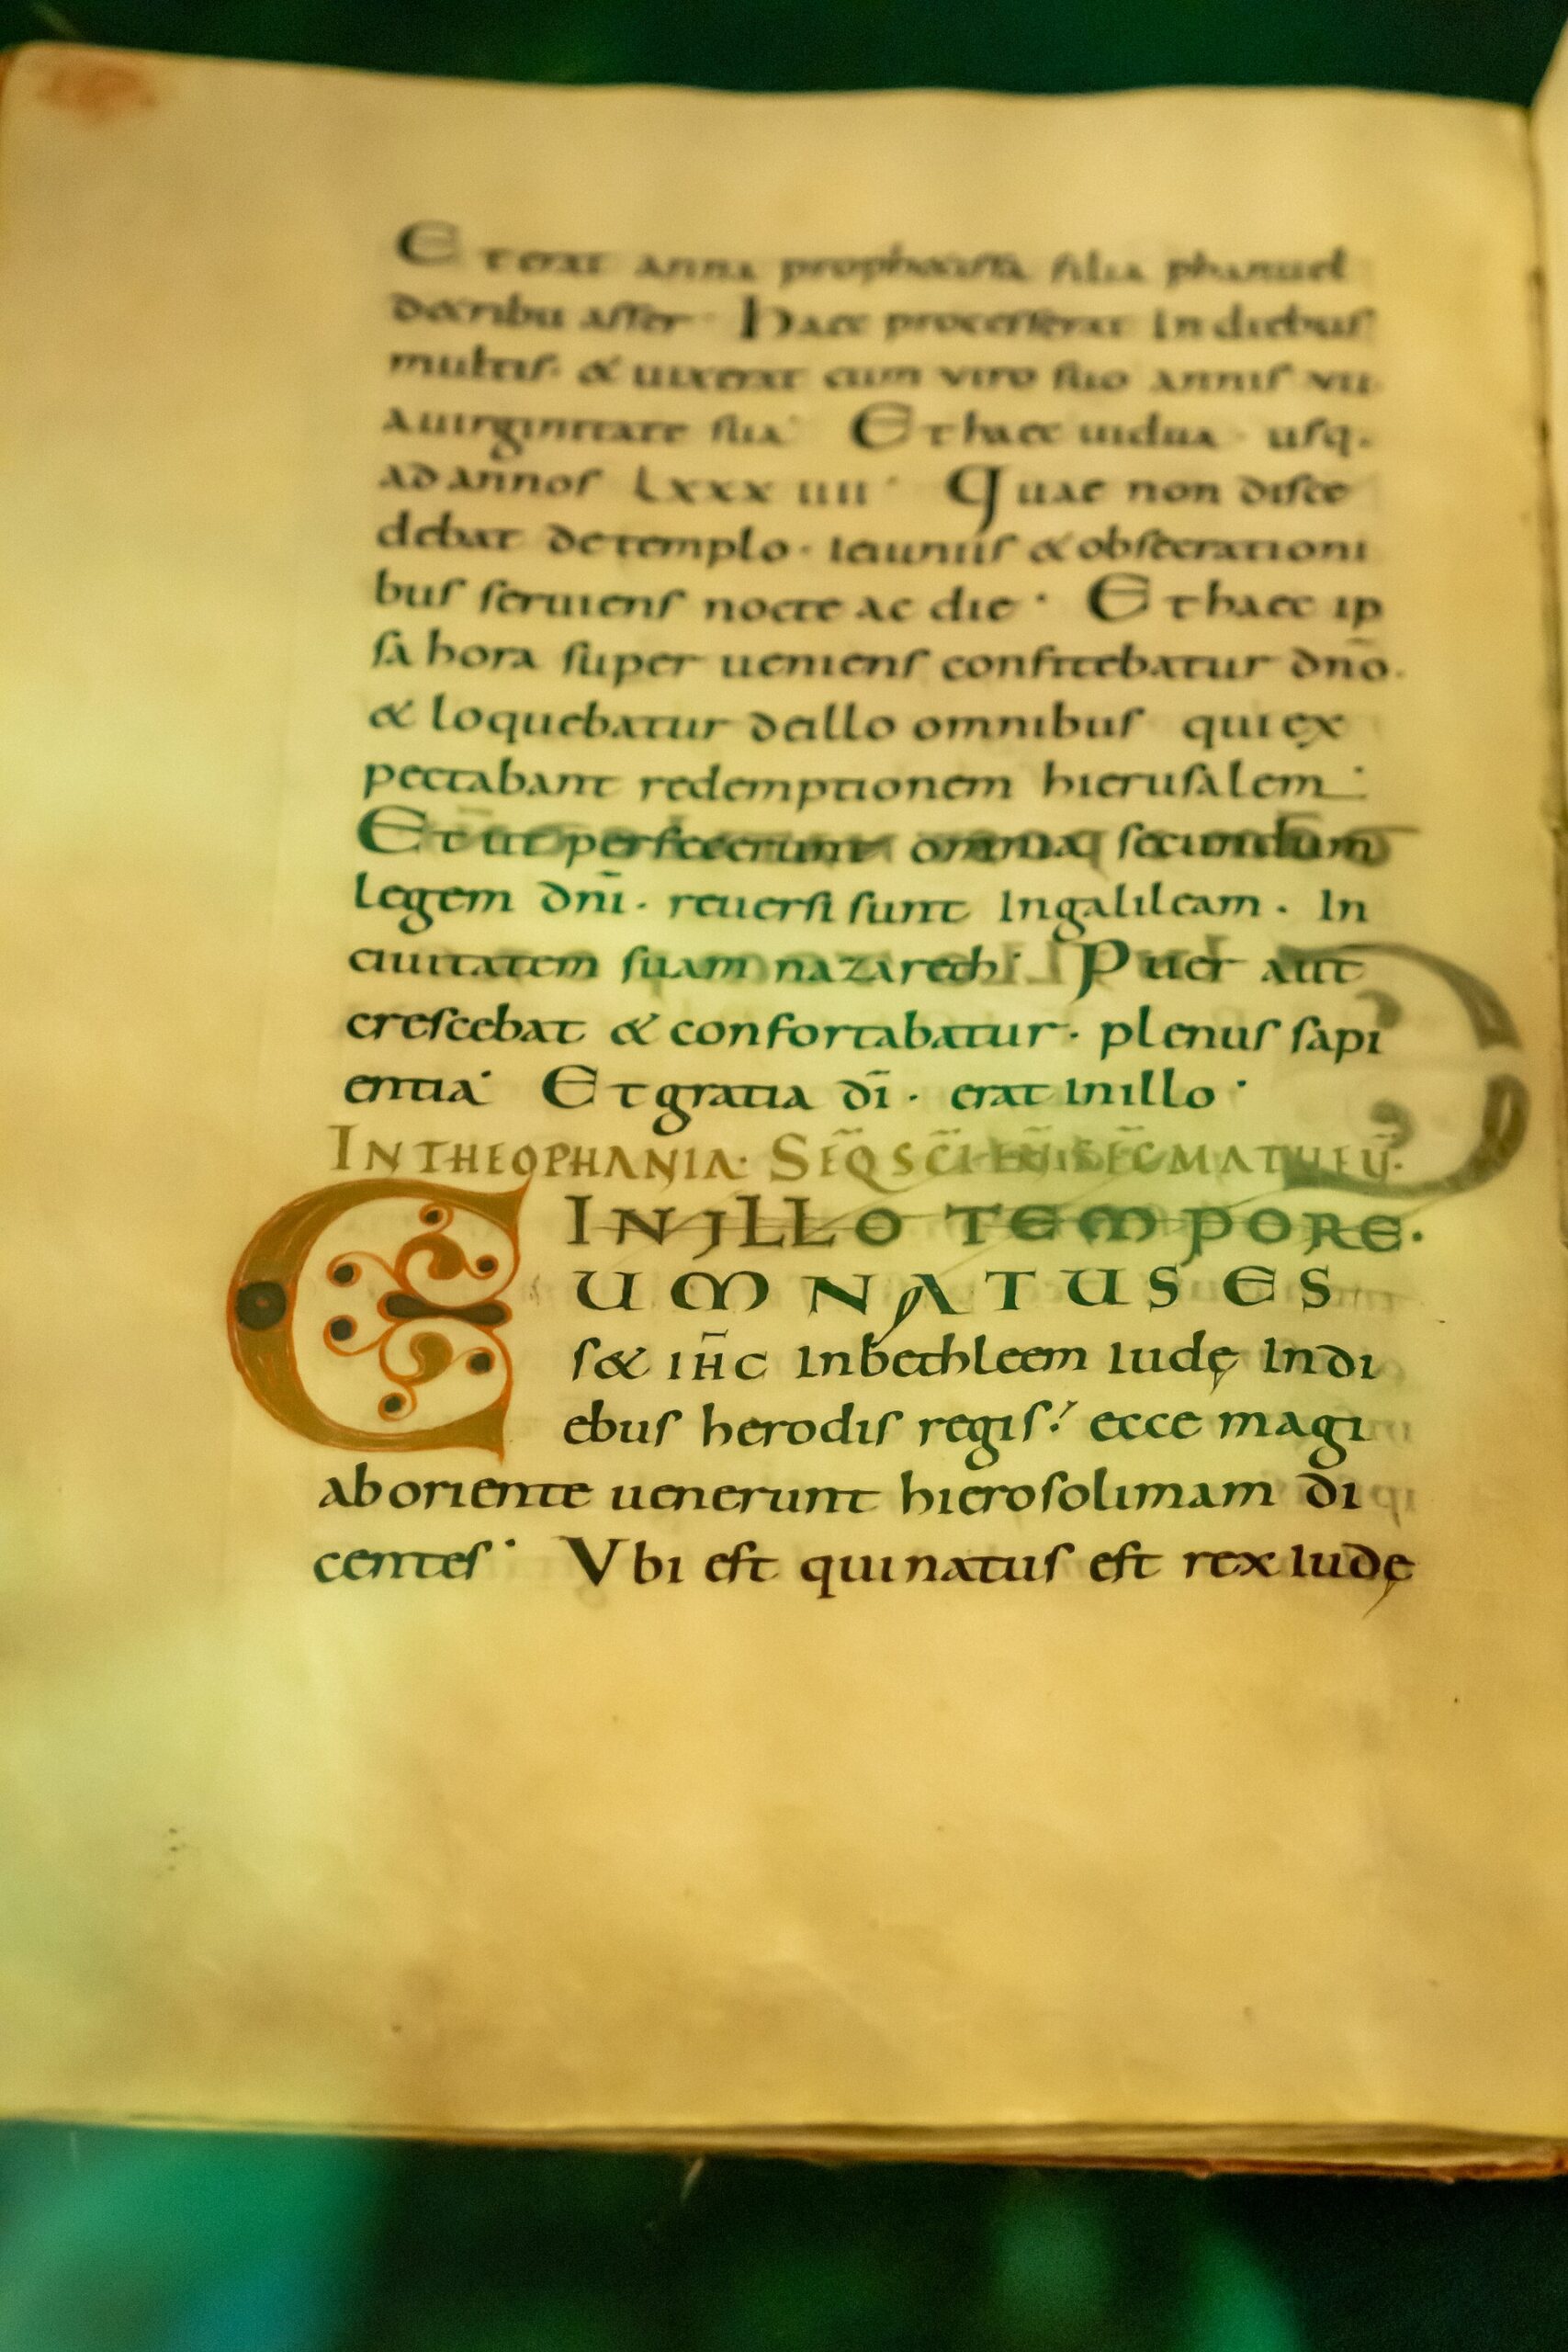 Et erat anna prophetissa filia phanuel
detribu asser · Haec processerat In diebus
multis · & uixerat cum viro suo annis vii
auirginitate sua · Et haec uidua · usq·
ad annos Lxxx iiii · Quae non disce
debat detemplo · Ieiuniis & obsecrationi
bus seruiens nocte ac die · Et haec ip
sa hora super ueniens confitebatur dño·
& loquebatur deillo omnibus qui ex
pectabant redemptionem hierusalem·
Et ut perfecerunt omnia secundum
legem dñi · reuersi sunt Ingalileam · In
ciuitatem suam nazareth · Puer aut
crescebat & confortabatur · plenus sapi
entia · Et gratia dī · erat Inillo ·
IN THEOPHANIA · SEQ̃ SC̃I EŨ SEC̃ MATHEŨ·
IN ILLO TEMPORE·
CUM NATUS ES
s& IH̄C Inbethleem Iudę Indi
ebus herodis regis ecce magi
aboriente uenerunt hierosolimam di
centes · Vbi est qui natus est rex Iudę